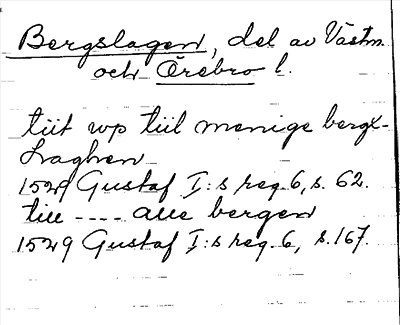 Bergslagen, del av Västm.
och Örebro l.
tiit wp tiil menige bergx-
Laghen
1529 Gustaf I:s reg. 6, s. 62.
till ---- alle bergen
1529 Gustaf I:s reg. 6, s. 167.